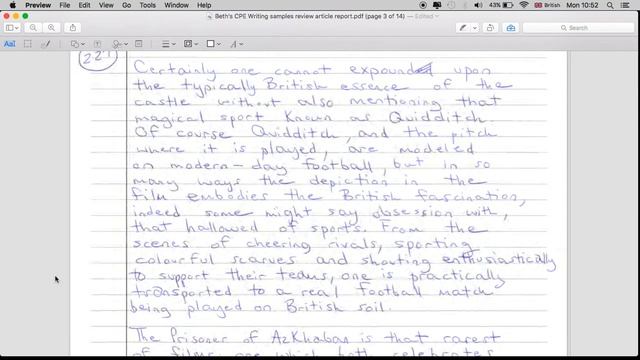 Preview File Edit View Go Tools Window Help
43% British Mon 10:52
Beth's CPE Writing samples review article report.pdf (page 3 of 14) — Edited
Search
227
Certainly one cannot expound upon
the typically British essence of the
castle without also mentioning that
magical sport known as Quidditch.
Of course Quidditch, and the pitch
where it is played, are modeled
on modern-day football, but in so
many ways the depiction in the
film embodies the British fascination,
indeed some might say obsession with,
that hallowed of sports. From the
scenes of cheering rivals, sporting
colourful scarves and shouting enthusiastically
to support their teams, one is practically
transported to a real football match
being played on British soil.
The Prisoner of Azkhaban is that rarest
of films, one which both celebrates